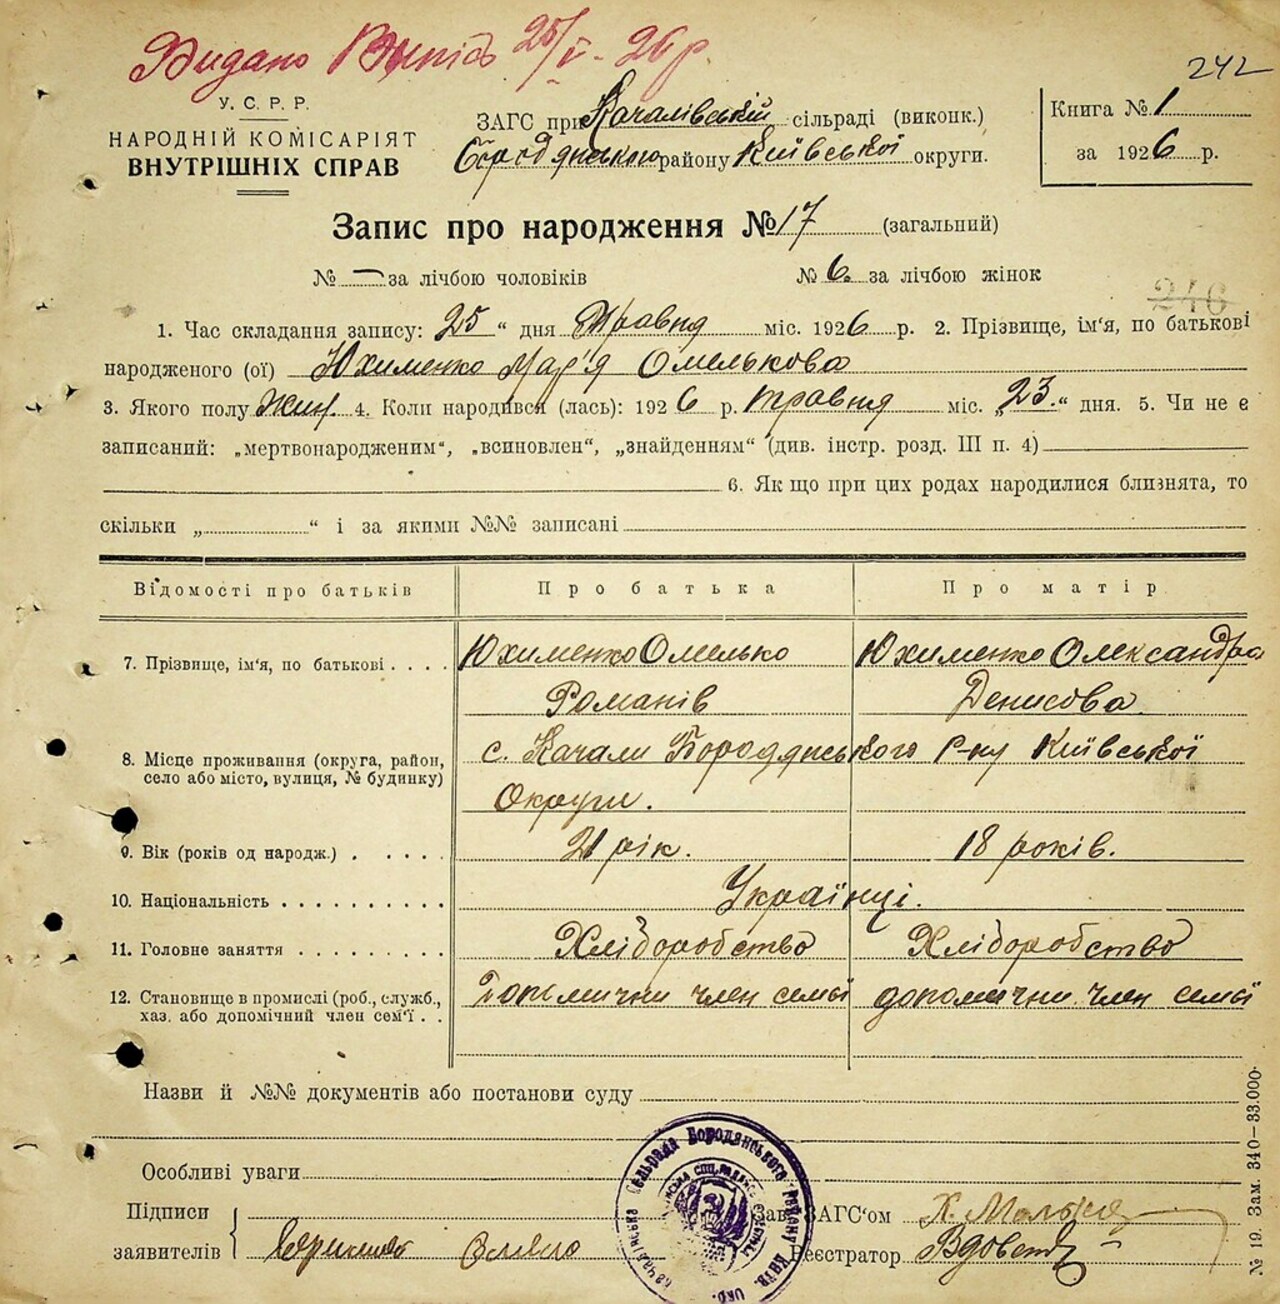 Видано Выпісь 25/V - 26 р.
242
У. С. Р. Р.
НАРОДНІЙ КОМІСАРІЯТ
ВНУТРІШНІХ СПРАВ
ЗАГС при Качалівській сільраді (виконк.)
Бородянського району Київської округи.
Книга № 1
за 1926 р.
Запис про народження № 17 (загальний)
№ — за лічбою чоловіків № 6. за лічбою жінок
246
1. Час складання запису: 25 “ дня Травня міс. 1926 р. 2. Прізвище, ім'я, по батькові
народженого (ої) Юхименко Мар'я Омелькова
3. Якого полу Жін. 4. Коли народився (лась): 1926 р. травня міс. „23.“ дня. 5. Чи не є
записаний: „мертвонародженим“, „всиновлен“, „знайденням“ (див. інстр. розд. III п. 4)
6. Як що при цих родах народилися близнята, то
скільки „ “ і за якими №№ записані
Відомості про батьків Про батька Про матір
7. Прізвище, ім'я, по батькові . . . . Юхименко Омелько Юхименко Олександра
Романів Денисова
8. Місце проживання (округа, район, с. Качали Бородянського Р-ну Київської
село або місто, вулиця, № будинку)
Округи.
9. Вік (років од народж.) . . . . . 21 рік. 18 років.
10. Національність . . . . . . . . . . Українці.
11. Головне заняття . . . . . . . . . Хліборобство Хліборобство
12. Становище в промислі (роб., служб., член семьї допомічни член семьї
хаз. або допомічний член сем'ї . .
Назви й №№ документів або постанови суду
Особливі уваги
Підписи Зав. ЗАГС'ом Х.
заявителів Реєстратор
Сельрада Бородянського Району Київ. Окр.
№ 19. Зам. 340—33.000-